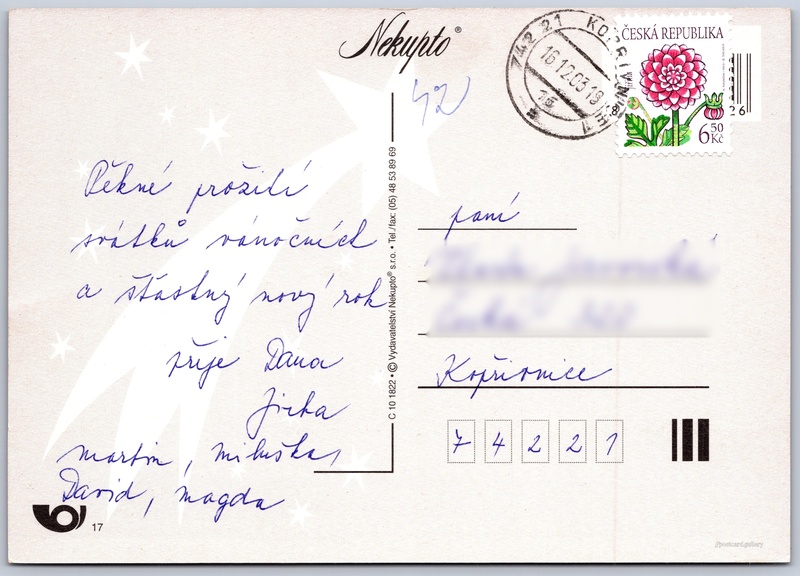 Nekupto®
42
742 21 KOPŘIVNICE 1
16.12.03 18
1a
ČESKÁ REPUBLIKA
6 50 Kč
26
Pěkné prožití
svátků vánočních
a šťastný nový rok
přeje Dana
Jirka
Martin, Miluška,
David, Magda
17
C 10 1822 • © Vydavatelství Nekupto® s.r.o. • Tel./fax: (05) 48 53 89 69
paní
Kopřivnice
7 4 2 2 1
postcard.gallery